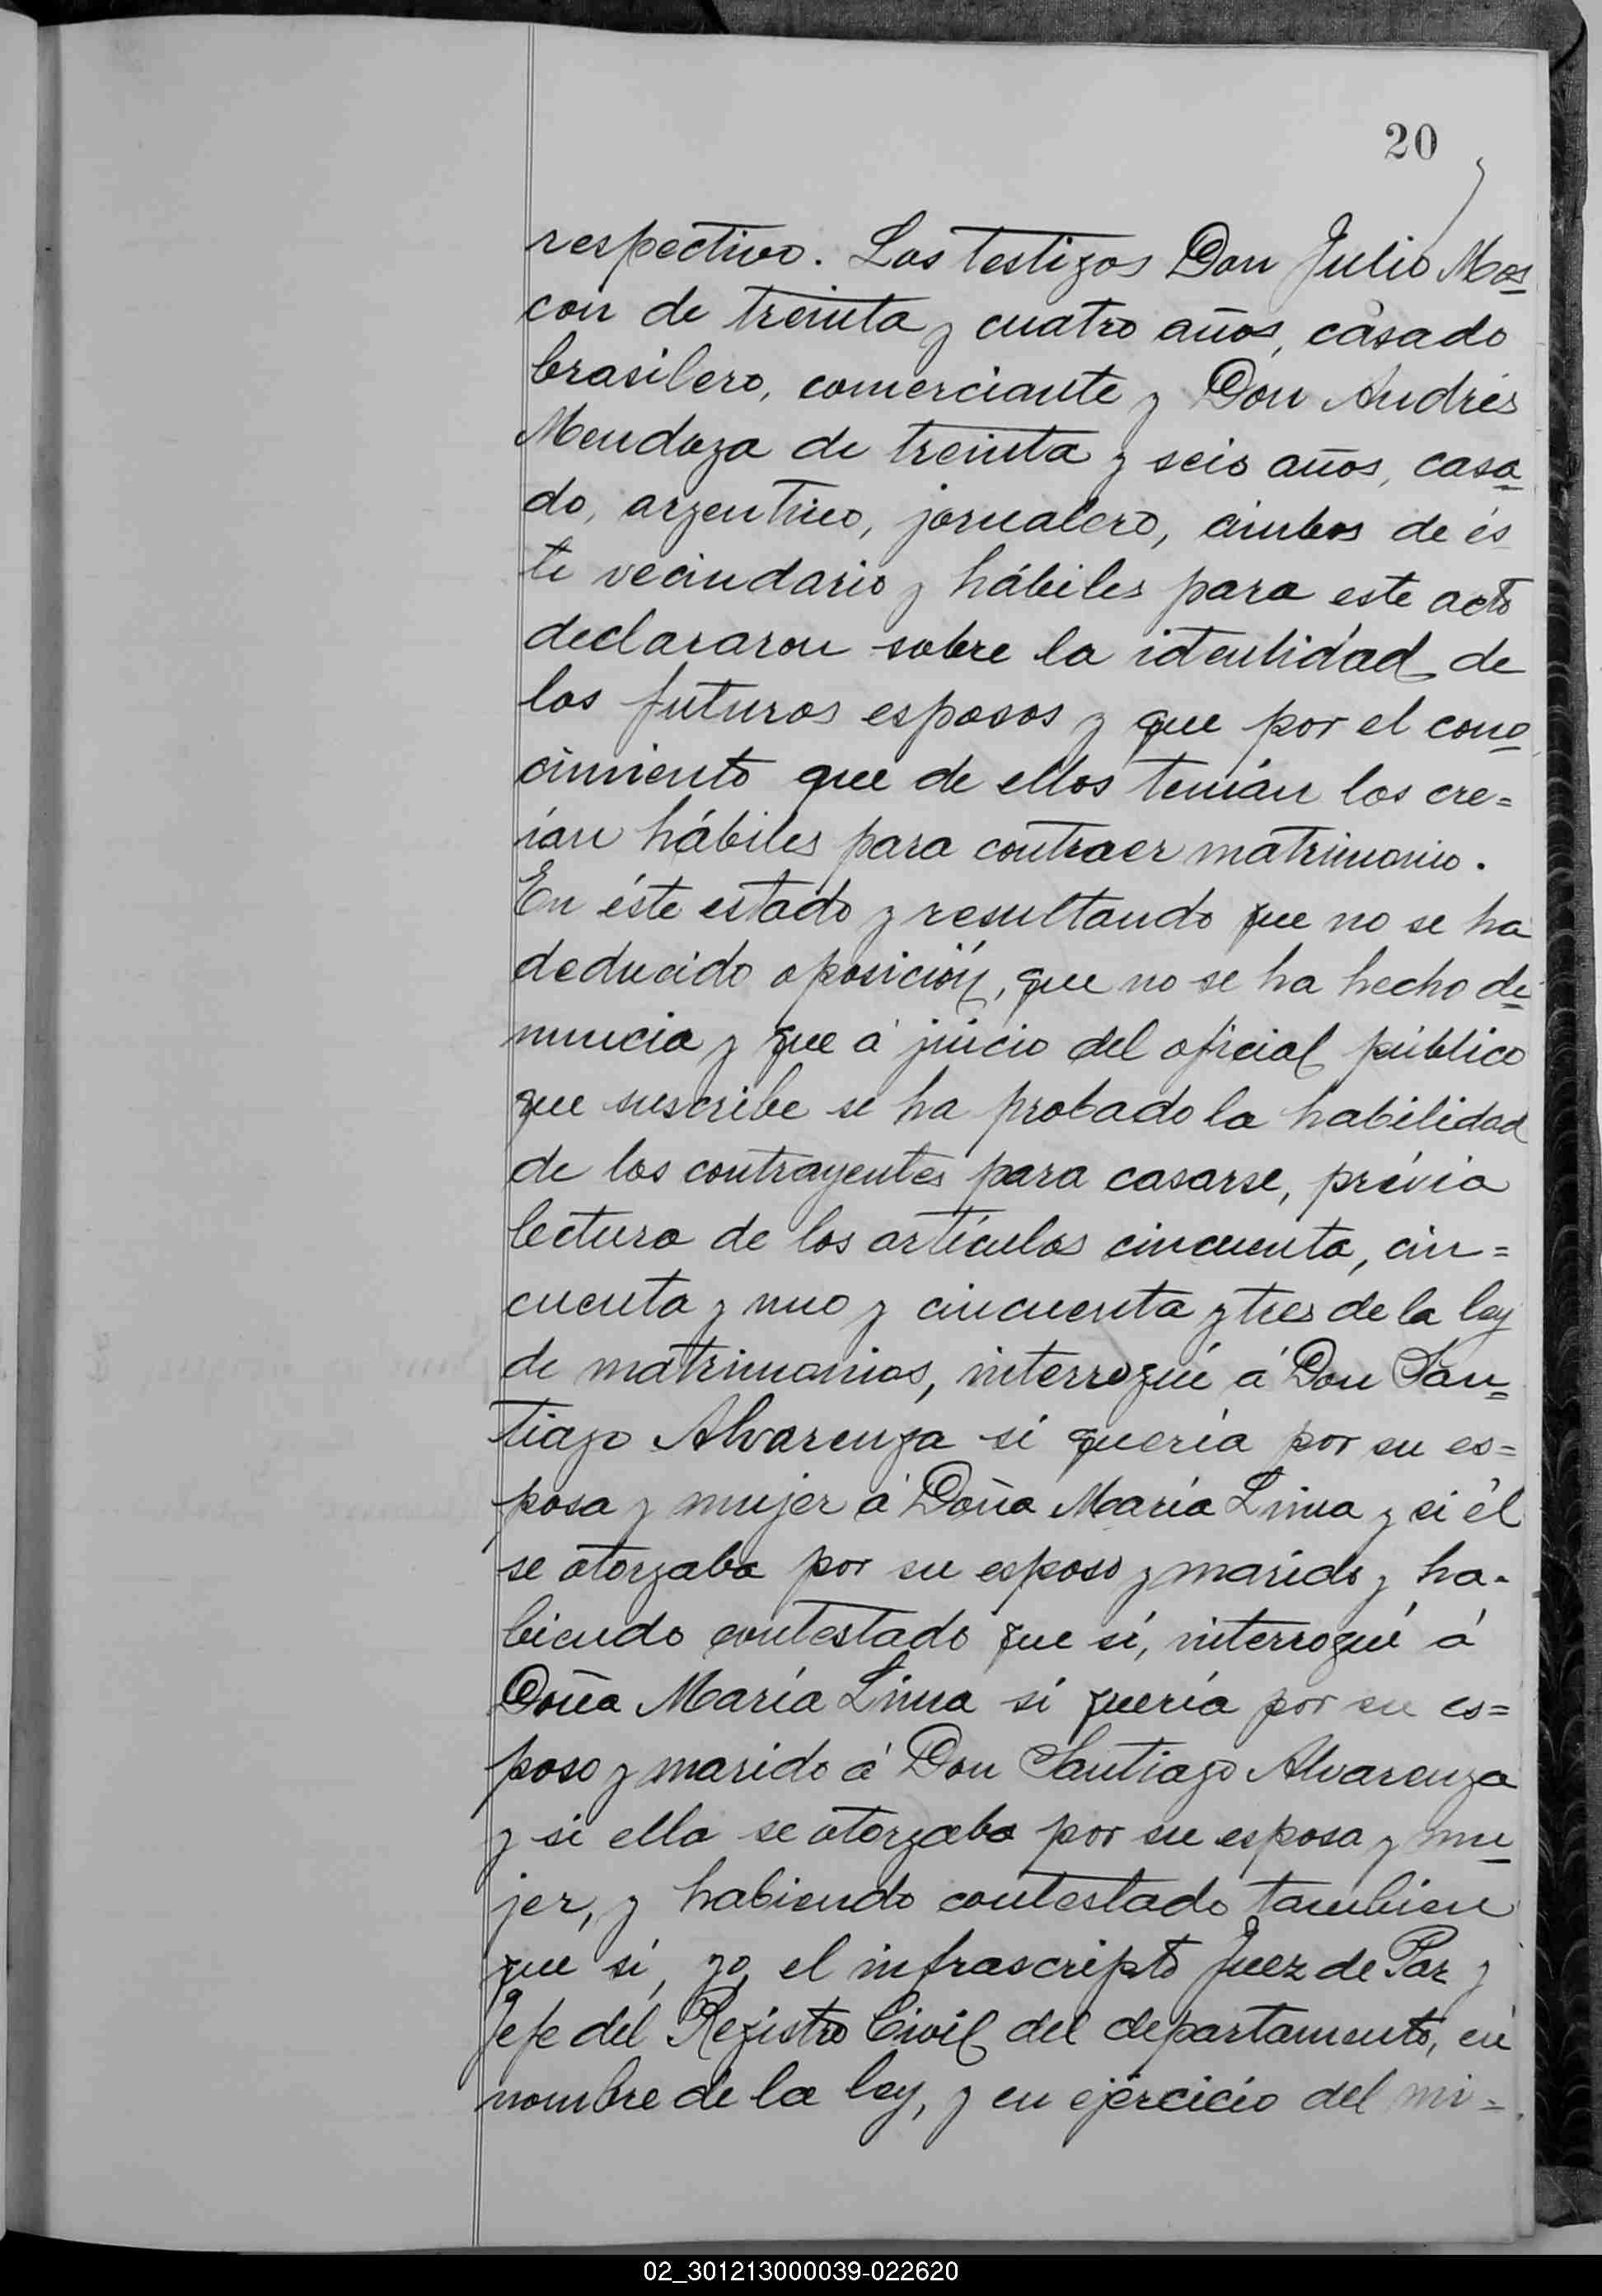 20
respectivo. Los testigos Don Julio Mos
con de treinta y cuatro años, casado
brasilero, comerciante y Don Andrés
Mendoza de treinta y seis años, casa
do, argentino, jornalero, ambos de és
te vecindario y hábiles para este acto
declararon sobre la identidad de
los futuros esposos y que por el cono
cimiento que de ellos tenían los cre=
ían hábiles para contraer matrimonio.
En éste estado y resultando que no se ha
deducido oposición, que no se ha hecho de
nuncia y que á juicio del oficial público
que suscribe se ha probado la habilidad
de los contrayentes para casarse, prévia
lectura de los artículos cincuenta, cin=
cuenta y uno y cincuenta y tres de la ley
de matrimonios, interrogué á Don San=
tiago Alvarenga si quería por su es=
posa y mujer á Doña María Lima y si él
se otorgaba por su esposo y marido y ha-
biendo contestado que sí, interrogué á
Doña María Lima si quería por su es=
poso y marido á Don Santiago Alvarenga
y si ella se otorgaba por su esposa y mu
jer, y habiendo contestado tambien
que sí, yo, el infrascripto Juez de Paz y
Jefe del Registro Civil del departamento, en
nombre de la ley, y en ejercicio del mi=
02_301213000039-022620